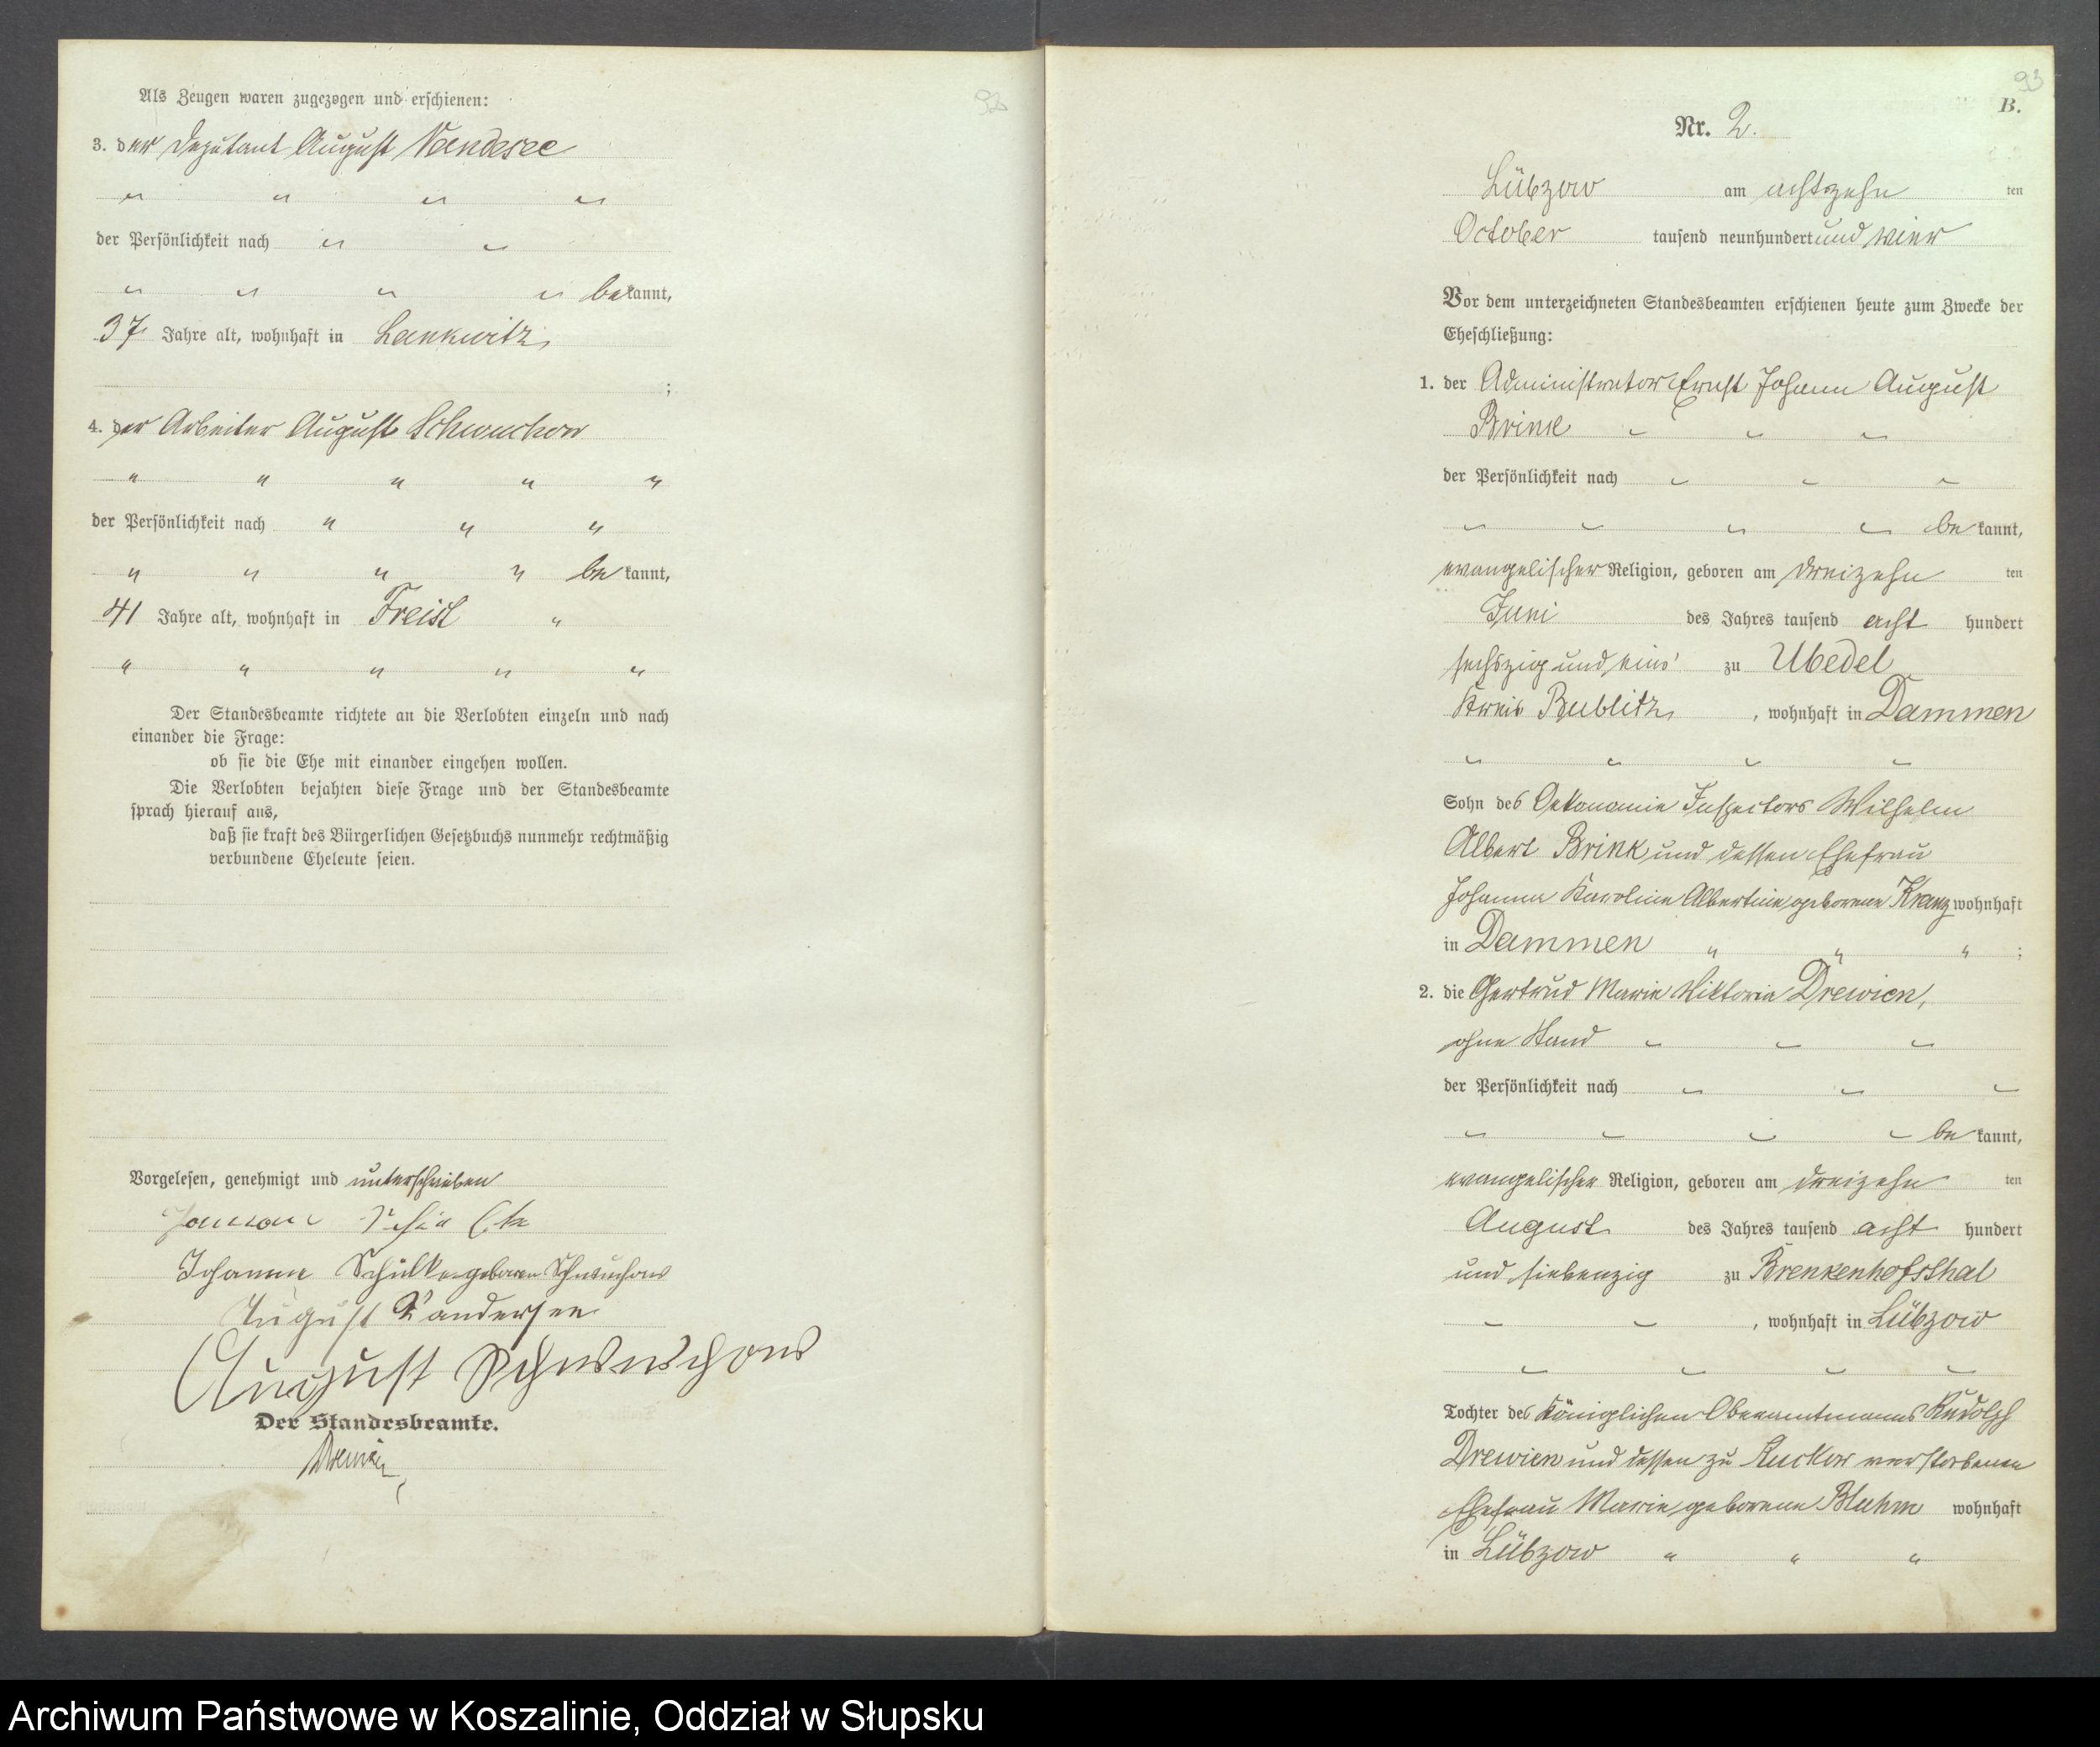 Als Zeugen waren zugezogen und erschienen:
3. der Deputant August
" " " "
der Persönlichkeit nach " "
" " " " bekannt,
37 Jahre alt, wohnhaft in Lankwitz,
;
4. der Arbeiter August Schwuchow
" " " " "
der Persönlichkeit nach " " "
" " " " bekannt,
41 Jahre alt, wohnhaft in Freist "
" " " " "
Der Standesbeamte richtete an die Verlobten einzeln und nach
einander die Frage:
ob sie die Ehe mit einander eingehen wollen.
Die Verlobten bejahten diese Frage und der Standesbeamte
sprach hierauf aus,
daß sie kraft des Bürgerlichen Gesetzbuchs nunmehr rechtmäßig
verbundene Eheleute seien.
Vorgelesen, genehmigt und unterschrieben
Johanne Schülke geborene Schwuchow
August
August Schwuchow
Der Standesbeamte.
Drewien
92
93
B.
Nr. 2.
Lübzow am achtzehn ten
October tausend neunhundert und vier
Vor dem unterzeichneten Standesbeamten erschienen heute zum Zwecke der
Eheschließung:
1. der Administrator Ernst Johann August
Brink " " "
der Persönlichkeit nach " " "
" " " " bekannt,
evangelischer Religion, geboren am dreizehn ten
Juni des Jahres tausend acht hundert
sechszig und eins zu Ubedel
Kreis Bublitz, wohnhaft in Dammen
" " " "
Sohn des Oekonomie Inspectors Wilhelm
Albert Brink und dessen Ehefrau
Johanna Karoline Albertine, geborene Kranz wohnhaft
in Dammen " " " ;
2. die Gertrud Marie Viktoria Drewien,
ohne Stand " " "
der Persönlichkeit nach " " "
" " " " bekannt,
evangelischer Religion, geboren am dreizehn ten
August des Jahres tausend acht hundert
und siebenzig zu Brenkenhofsthal
" " , wohnhaft in Lübzow
" " " "
Tochter des Königlichen Oberamtmanns Rudolph
Drewien und dessen zu Ruckow verstorbenen
Ehefrau Marie, geborene Bluhm wohnhaft
in Lübzow " " "
Archiwum Państwowe w Koszalinie, Oddział w Słupsku